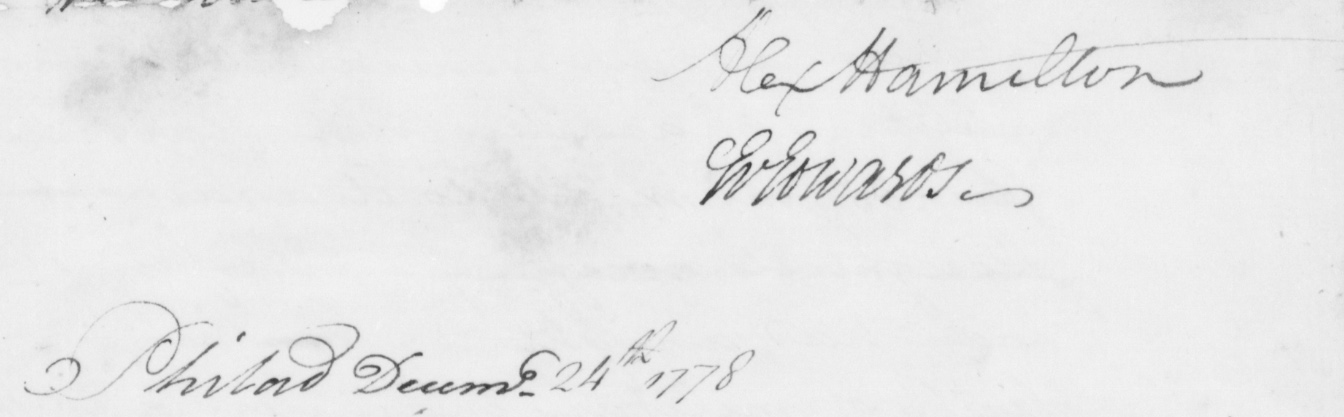 Alex Hamilton
Ev Edwards
Philad Decemr. 24th 1778